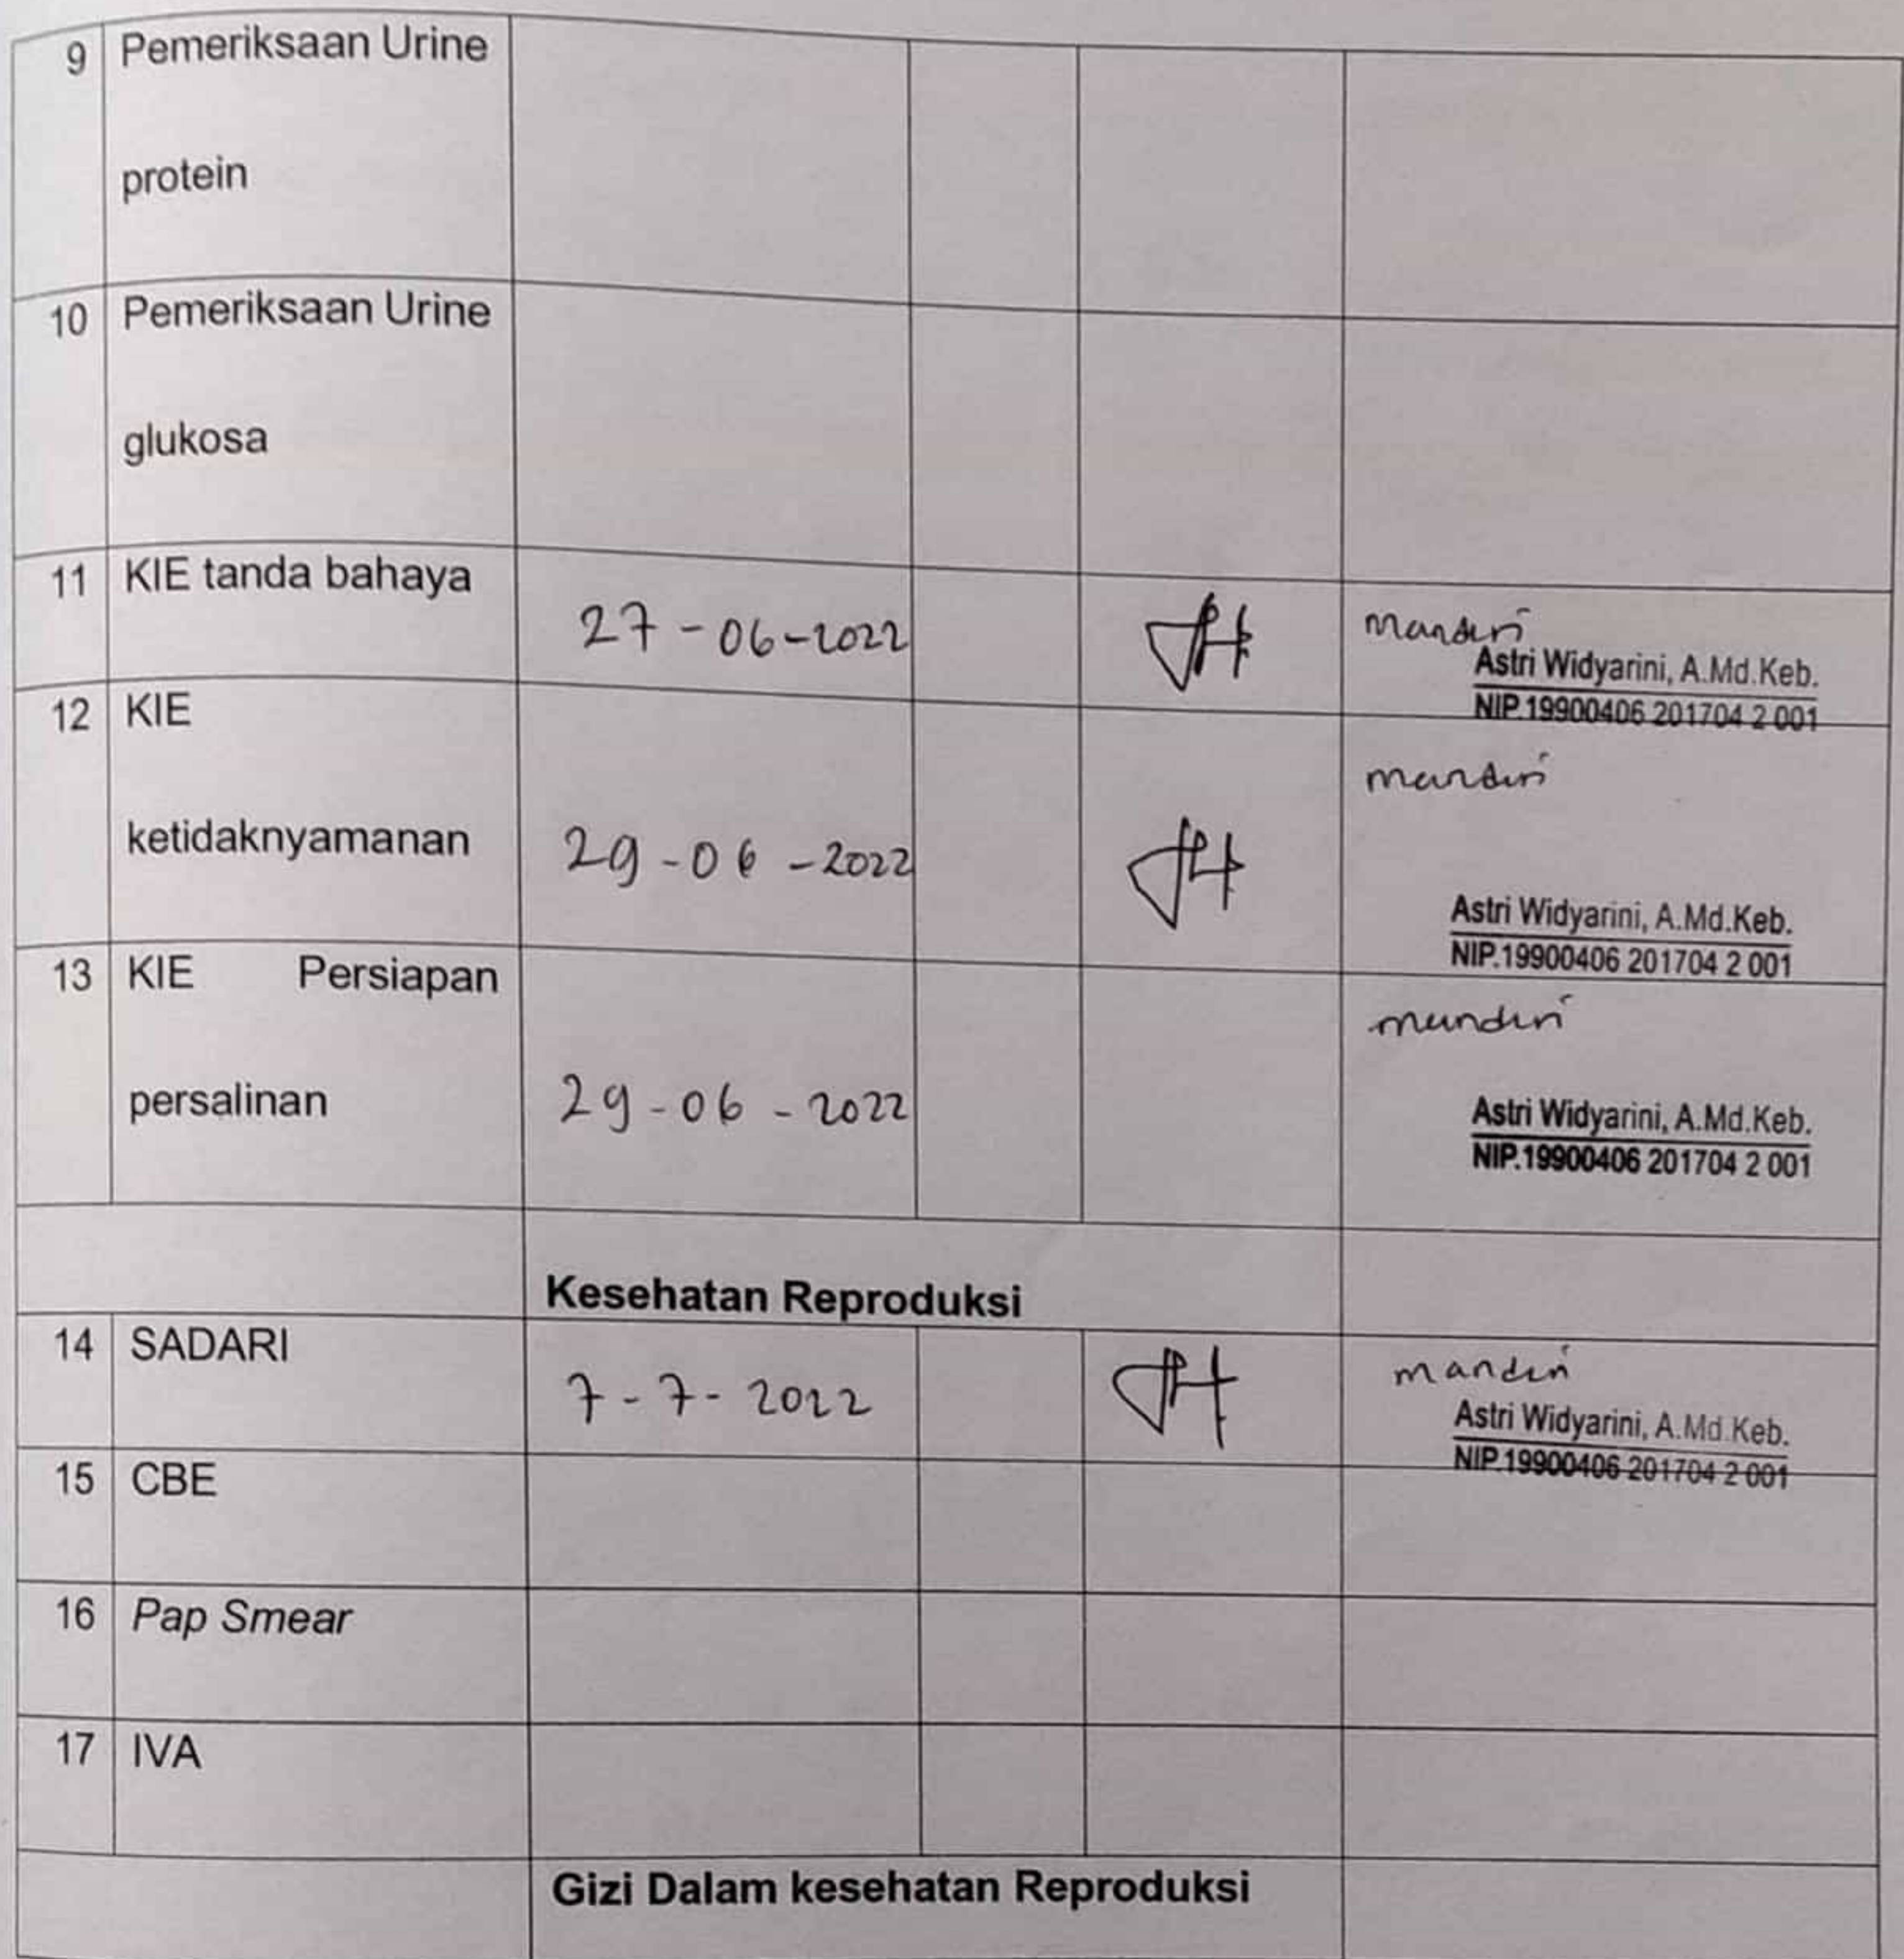 9 Pemeriksaan Urine
protein
10 Pemeriksaan Urine
glukosa
11 KIE tanda bahaya
27-06-2022
mandiri
Astri Widyarini, A.Md.Keb.
NIP.19900406 201704 2 001
12 KIE
mandiri
ketidaknyamanan 29-06-2022
Astri Widyarini, A.Md.Keb.
NIP.19900406 201704 2 001
13 KIE Persiapan
mandiri
persalinan 29-06-2022
Astri Widyarini, A.Md.Keb.
NIP.19900406 201704 2 001
Kesehatan Reproduksi
14 SADARI
7-7-2022
mandiri
Astri Widyarini, A.Md.Keb.
NIP.19900406 201704 2 001
15 CBE
16 Pap Smear
17 IVA
Gizi Dalam kesehatan Reproduksi